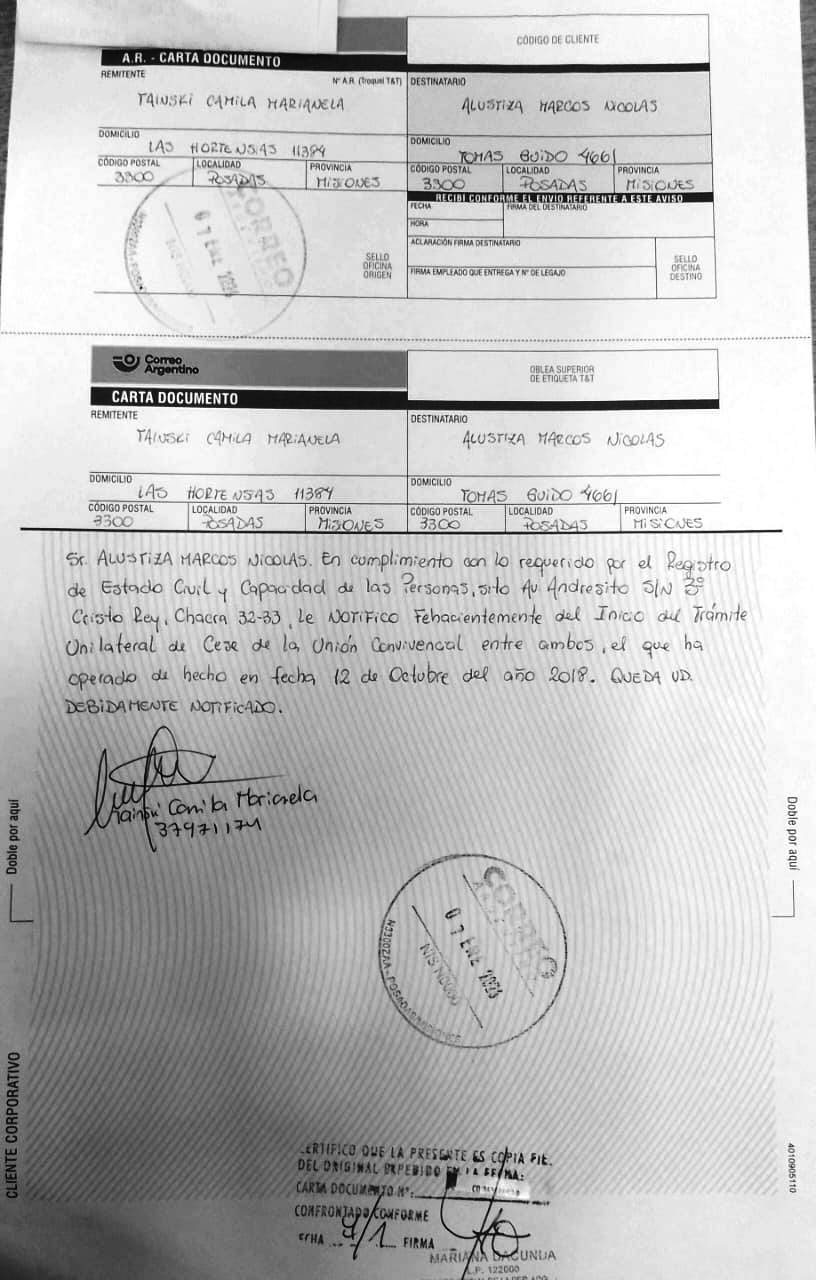 CÓDIGO DE CLIENTE
A.R. - CARTA DOCUMENTO
REMITENTE
Nº A.R. (Troquel T&T)
TAINSKI CAMILA MARIANELA
DESTINATARIO
ALUSTIZA MARCOS NICOLAS
DOMICILIO
LAS HORTENSIAS 11384
DOMICILIO
TOMAS GUIDO 4661
CÓDIGO POSTAL LOCALIDAD PROVINCIA
3300 POSADAS MISIONES
CÓDIGO POSTAL LOCALIDAD PROVINCIA
3300 POSADAS MISIONES
RECIBÍ CONFORME EL ENVIO REFERENTE A ESTE AVISO
FECHA FIRMA DEL DESTINATARIO
HORA
ACLARACIÓN FIRMA DESTINATARIO
FIRMA EMPLEADO QUE ENTREGA Y Nº DE LEGAJO
SELLO
OFICINA
ORIGEN
SELLO
OFICINA
DESTINO
CORREO
07 ENE
Correo
Argentino
OBLEA SUPERIOR
DE ETIQUETA T&T
CARTA DOCUMENTO
REMITENTE
TAINSKI CAMILA MARIANELA
DESTINATARIO
ALUSTIZA MARCOS NICOLAS
DOMICILIO
LAS HORTENSIAS 11384
DOMICILIO
TOMAS GUIDO 4661
CÓDIGO POSTAL LOCALIDAD PROVINCIA
3300 POSADAS MISIONES
CÓDIGO POSTAL LOCALIDAD PROVINCIA
3300 POSADAS MISIONES
Sr. ALUSTIZA MARCOS NICOLAS. En cumplimiento con lo requerido por el Registro
de Estado Civil y Capacidad de las Personas, sito Av. Andresito S/N Bº
Cristo Rey, Chacra 32-33, Le NOTIFICO Fehacientemente del Inicio del Trámite
Unilateral de Cese de la Unión Convivencial entre ambos, el que ha
operado de hecho en fecha 12 de Octubre del año 2018. QUEDA UD.
DEBIDAMENTE NOTIFICADO.
Tainski Camila Marianela
37971174
Doble por aquí
Doble por aquí
CORREO
07 ENE
CLIENTE CORPORATIVO
4010905110
CERTIFICO QUE LA PRESENTE ES COPIA FIE.
DEL ORIGINAL EXPEDIDO EN LA FECHA:
CARTA DOCUMENTO Nº:
CONFRONTADO CONFORME
FECHA 7/1 FIRMA
MARIANA DACUNDA
L.P. 122000